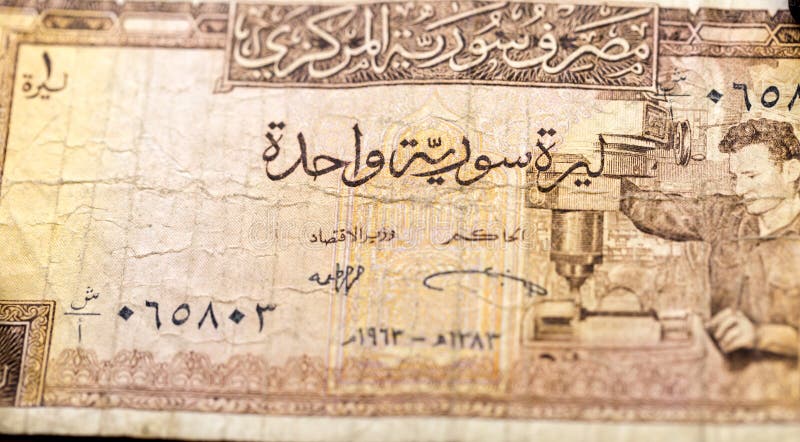 مصرف سورية المركزي
١
ليرة
ش ٠٦٥٨
ليرة سورية واحدة
الحاكم وزير الاقتصاد
ش/أ ٠٦٥٨٠٣
١٣٨٣هـ - ١٩٦٣م